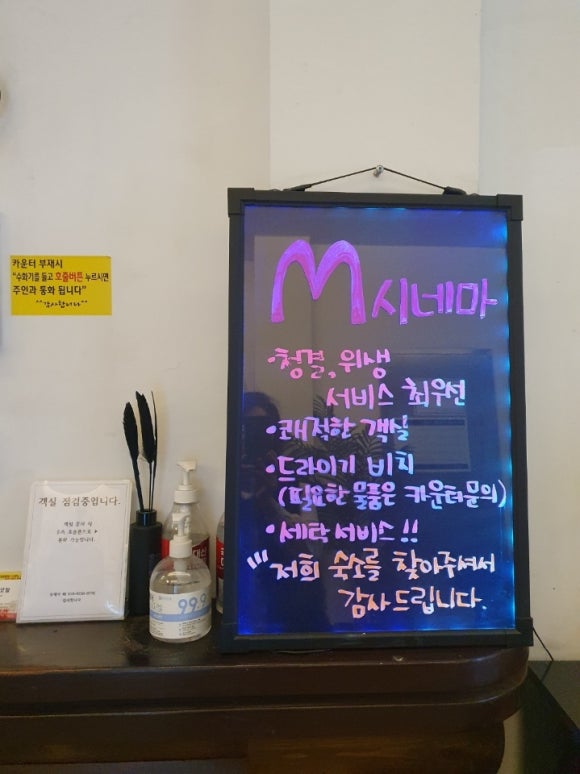 카운터 부재시
"수화기를 들고 호출버튼 누르시면
주인과 통화 됩니다"
^^감사합니다^^
M 시네마
•청결, 위생
서비스 최우선
•쾌적한 객실
•드라이기 비치
(필요한 물품은 카운터문의)
•세탁서비스!!
저희 숙소를 찾아주셔서
감사드립니다.
객실 점검중입니다.
객실 문의 시
통화 가능합니다.
99.9